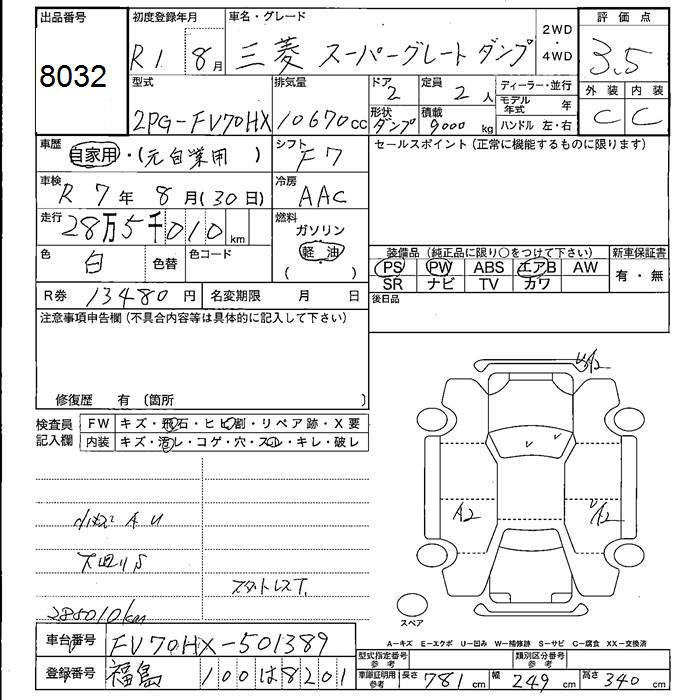 出品番号
8032
初度登録年月
R1 8月
車名・グレード
三菱 スーパーグレートダンプ
2WD
・
4WD
評価点
3.5
型式
2PG-FV70HX
排気量
10670cc
ドア
2
定員
2人
ディーラー・並行
外装 内装
形状
ダンプ
積載
9000kg
モデル年式 年
ハンドル 左・右
C C
車歴
自家用・(元自業用)
シフト
F7
セールスポイント(正常に機能するものに限ります)
車検
R 7年 8月(30日)
冷房
AAC
走行
28万5千010km
燃料
ガソリン
軽油
( )
色
白
色替
色コード
装備品(純正品に限り○をつけて下さい)
新車保証書
PS PW ABS エアB AW
有・無
SR ナビ TV カワ
R券 13480円
名変期限 月 日
後日品
注意事項申告欄(不具合内容等は具体的に記入して下さい)
修復歴 有(箇所 )
検査員
記入欄
FW キズ・飛石・ヒビ割・リペア跡・X要
内装 キズ・汚レ・コゲ・穴・スレ・キレ・破レ
UA2
A2
UA2
小傷 A U
下回りS
スタットレスT.
285010km
スペア
A=キズ E=エクボ U=凹み W=補修跡 S=サビ C=腐食 XX=交換済
車台番号
FV70HX-501389
型式指定番号
参考
類別区分番号
参考
登録番号
福島 100は8201
車庫証明用
参考
長さ 781cm 幅 249cm 高さ 340cm